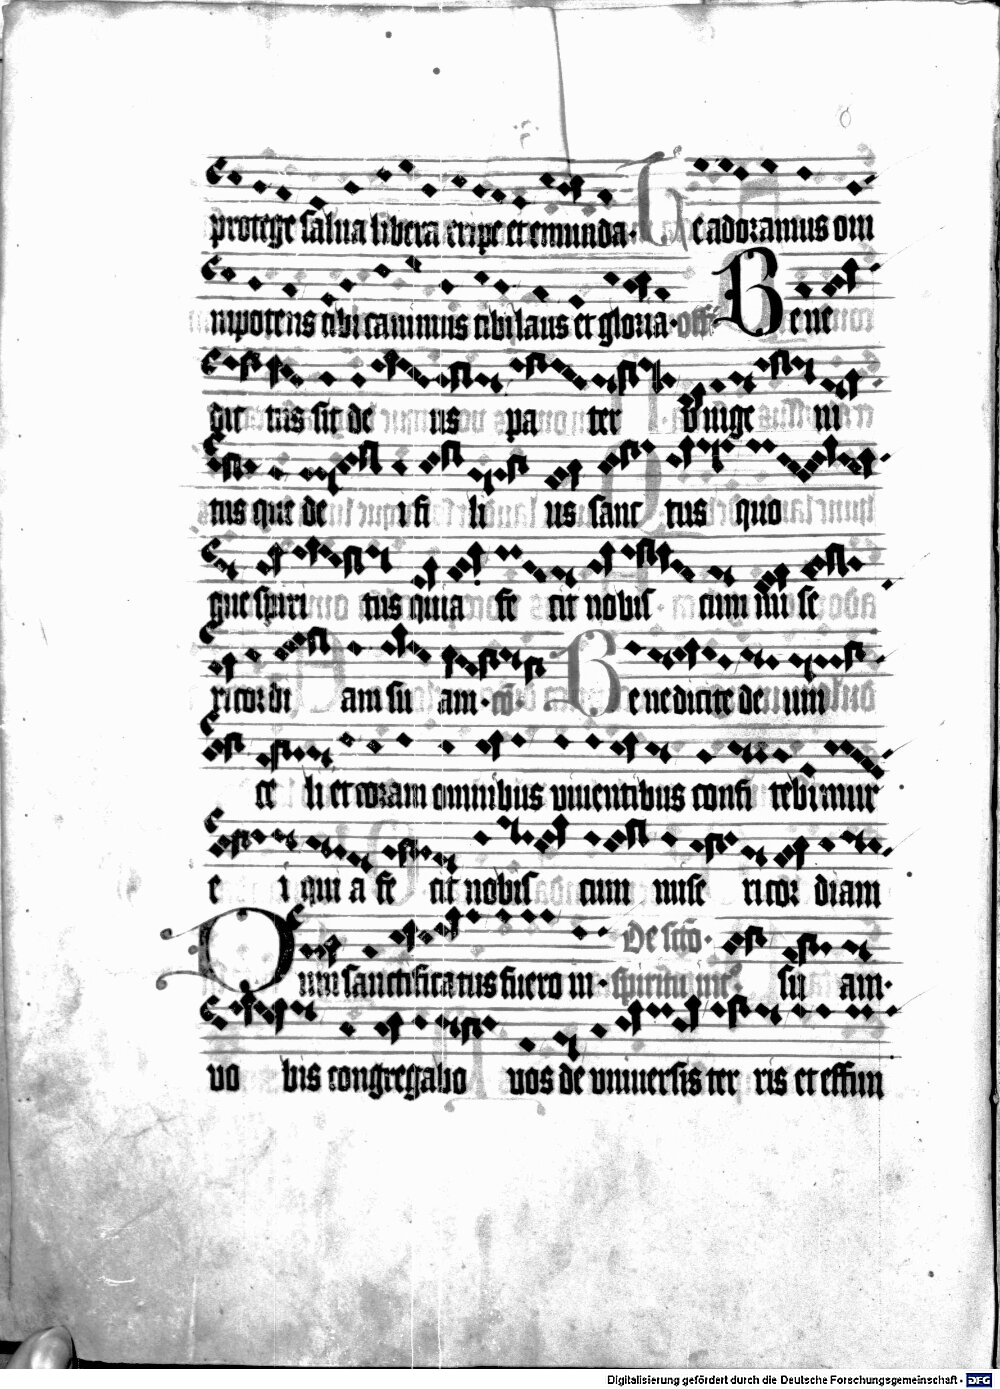 protege salua libera eripe et emunda · Te adoramus om
nipotens tibi canimus tibi laus et gloria · off Bene
dic tus sit de us pa ter vnige ni
tus que de i fi li us sanc tus quo
que spiri tus quia fe cit nobis cum mi se
ricordi am su am · co · Benedicite de um
ce li et coram omnibus viuentibus confi tebimur
e i qui a fe cit nobis cum mise ricor diam
De scto · su am ·
Dum sanctificatus fuero in · spiritu
vo bis congregabo vos de vniuersis ter ris et effun
Digitalisierung gefördert durch die Deutsche Forschungsgemeinschaft - DFG